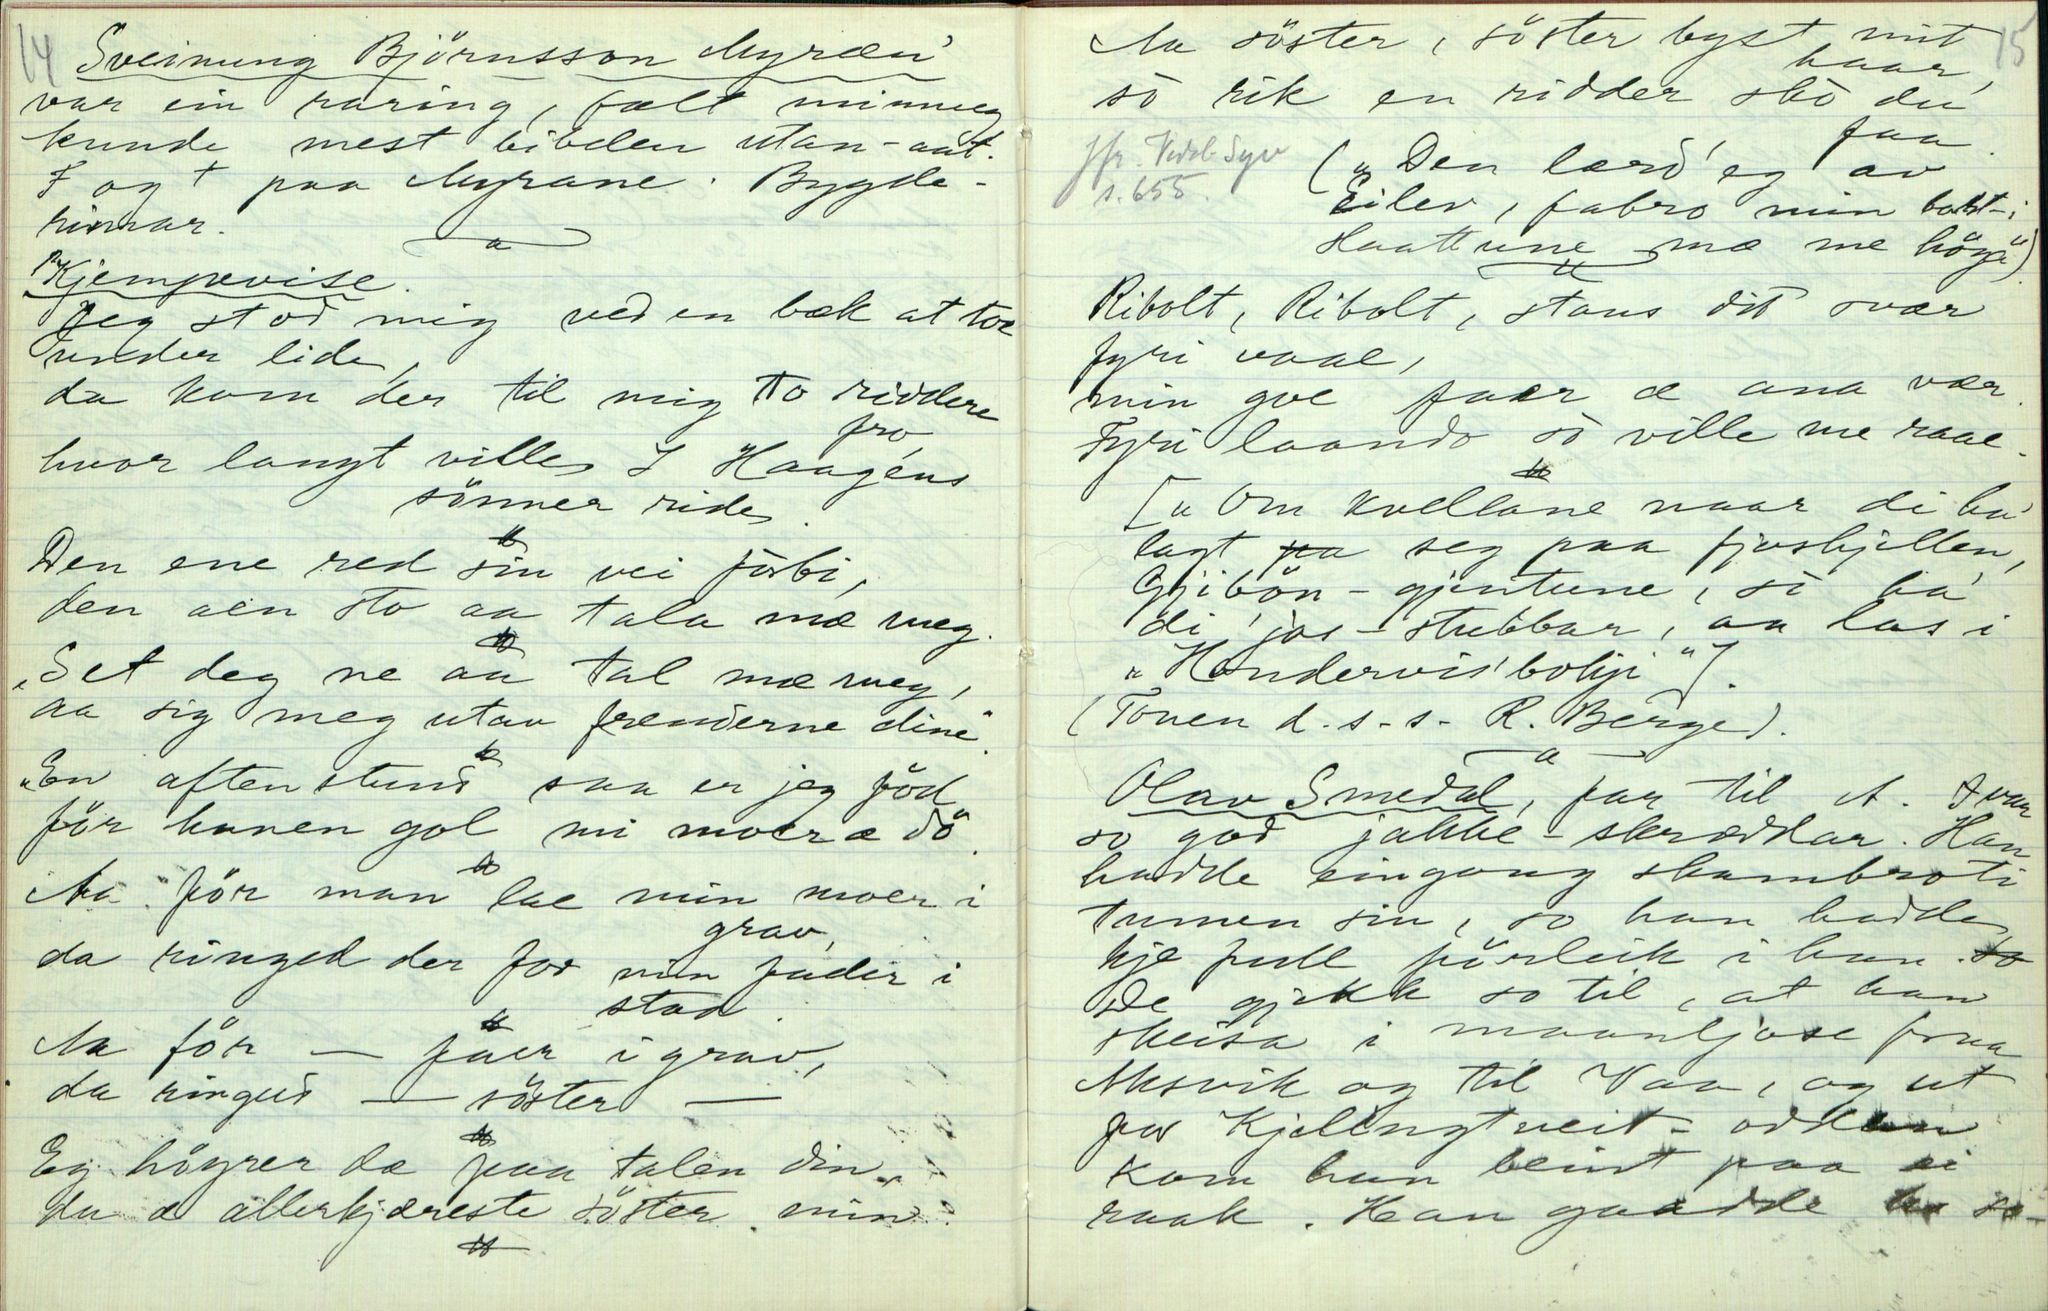 14
Sveinung Björnsson Myræn'
var ein raring, fælt minnug
kunde mest bibelen utan-aat.
F og † paa Myrane. Bygde-
rimar.
"Kjempevise.
Jeg stod mig ved en bæk at toe
under lide,
da kom der til mig to riddere
fro,
hvor langt ville I Haagens
sönner ride.
Den ene red sin vei forbi,
den aen sto aa tala mæ meg.
"Set deg ne aa tal mæ meg,
aa sig meg utav frenderne dine".
"En aftenstund saa er jeg föd
för hanen gol mi moer æ dö".
Aa för man lae min moer i
grav,
da ringed der for min fader i
stad.
Aa för — faer i grav,
da ringed — söster —
Eg höyrer de paa talen din,
du æ allerkjæreste söster min
15
Aa söster, söster byst mit
haar,
so rik en ridder sko du
faa.
jfr. Vedel Syv
s. 655.
("Den lærd' eg av
Eilev, fabro min bort-i
Haattune mæ me högg")
Ribolt, Ribolt, stans dit svær
fyri vaal,
min goe faer æ ana vær.
Fyri laando so ville me raae.
["Om kvellane naar di ha'
lagt seg paa fjoshjellen,
Gjibön-gjentune, so ha'
di jos-stubbar, aa las i
"Hondervisboki"].
(Tonen d.s.s. R. Berge).
Olav Smedal, far til A. Svar
so god jakke-skræddar. Han
hadde eingong skambroti
tumen sin, so han hadde
kje full förleik i han.
De gjekk so til, at han
skeisa i maaneljose fraa
Aksvik og til Vaa, og ut
for Kjelingtveit-odden
kom han beint paa ei
raak. Han gaadde so-